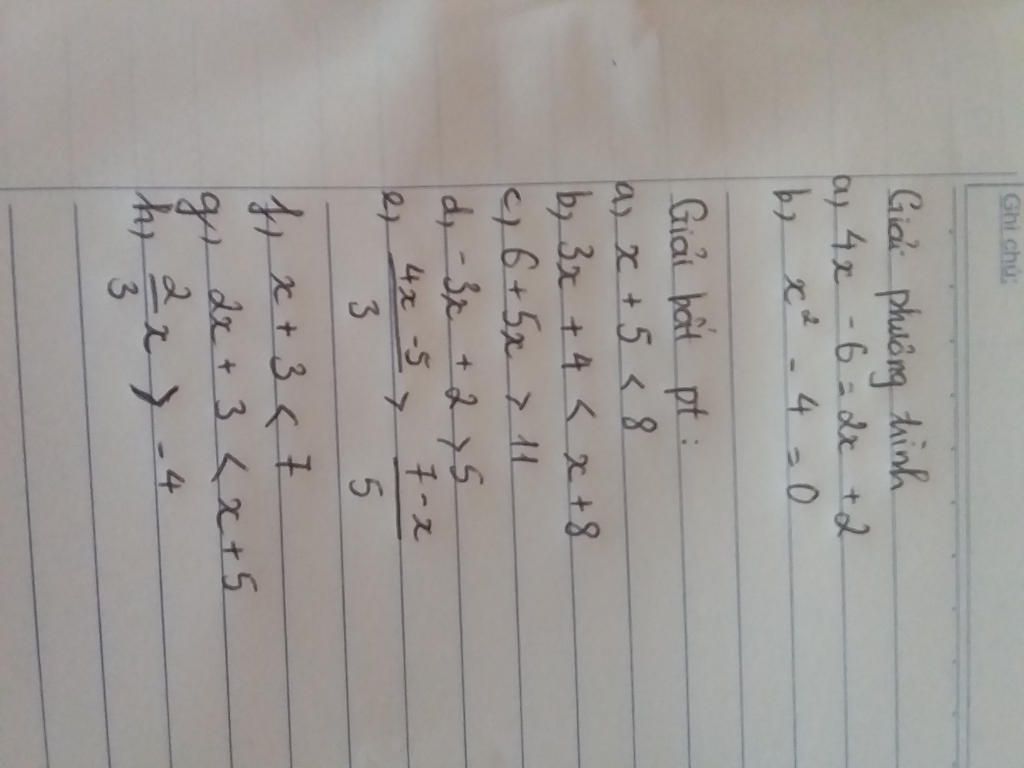 Ghi chú:
Giải phương trình
a, 4x - 6 = 2x + 2
b, x² - 4 = 0
Giải bất pt:
a, x + 5 < 8
b, 3x + 4 < x + 8
c, 6 + 5x > 11
d, -3x + 2 > 5
e, (4x - 5)/3 > (7 - x)/5
f, x + 3 < 7
g, 2x + 3 < x + 5
h, 2/3 x > -4